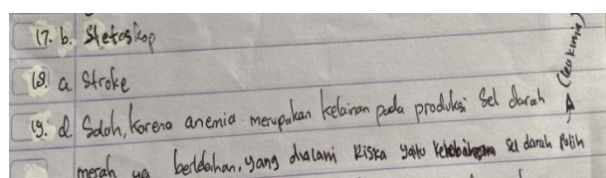 17. b. Stetoskop
18. a Stroke
19. d. Salah, karena anemia merupakan kelainan pada produksi sel darah
merah yg berlebihan, yang dialami Riska yaitu kelebihan sel darah putih
(leukimia)